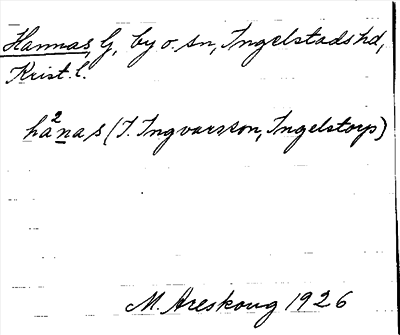 Hannas, G, by o. sn, Ingelstads hd,
Krist. l.
ha²nas (T. Ingvarsson, Ingelstorp)
M. Areskoug 1926